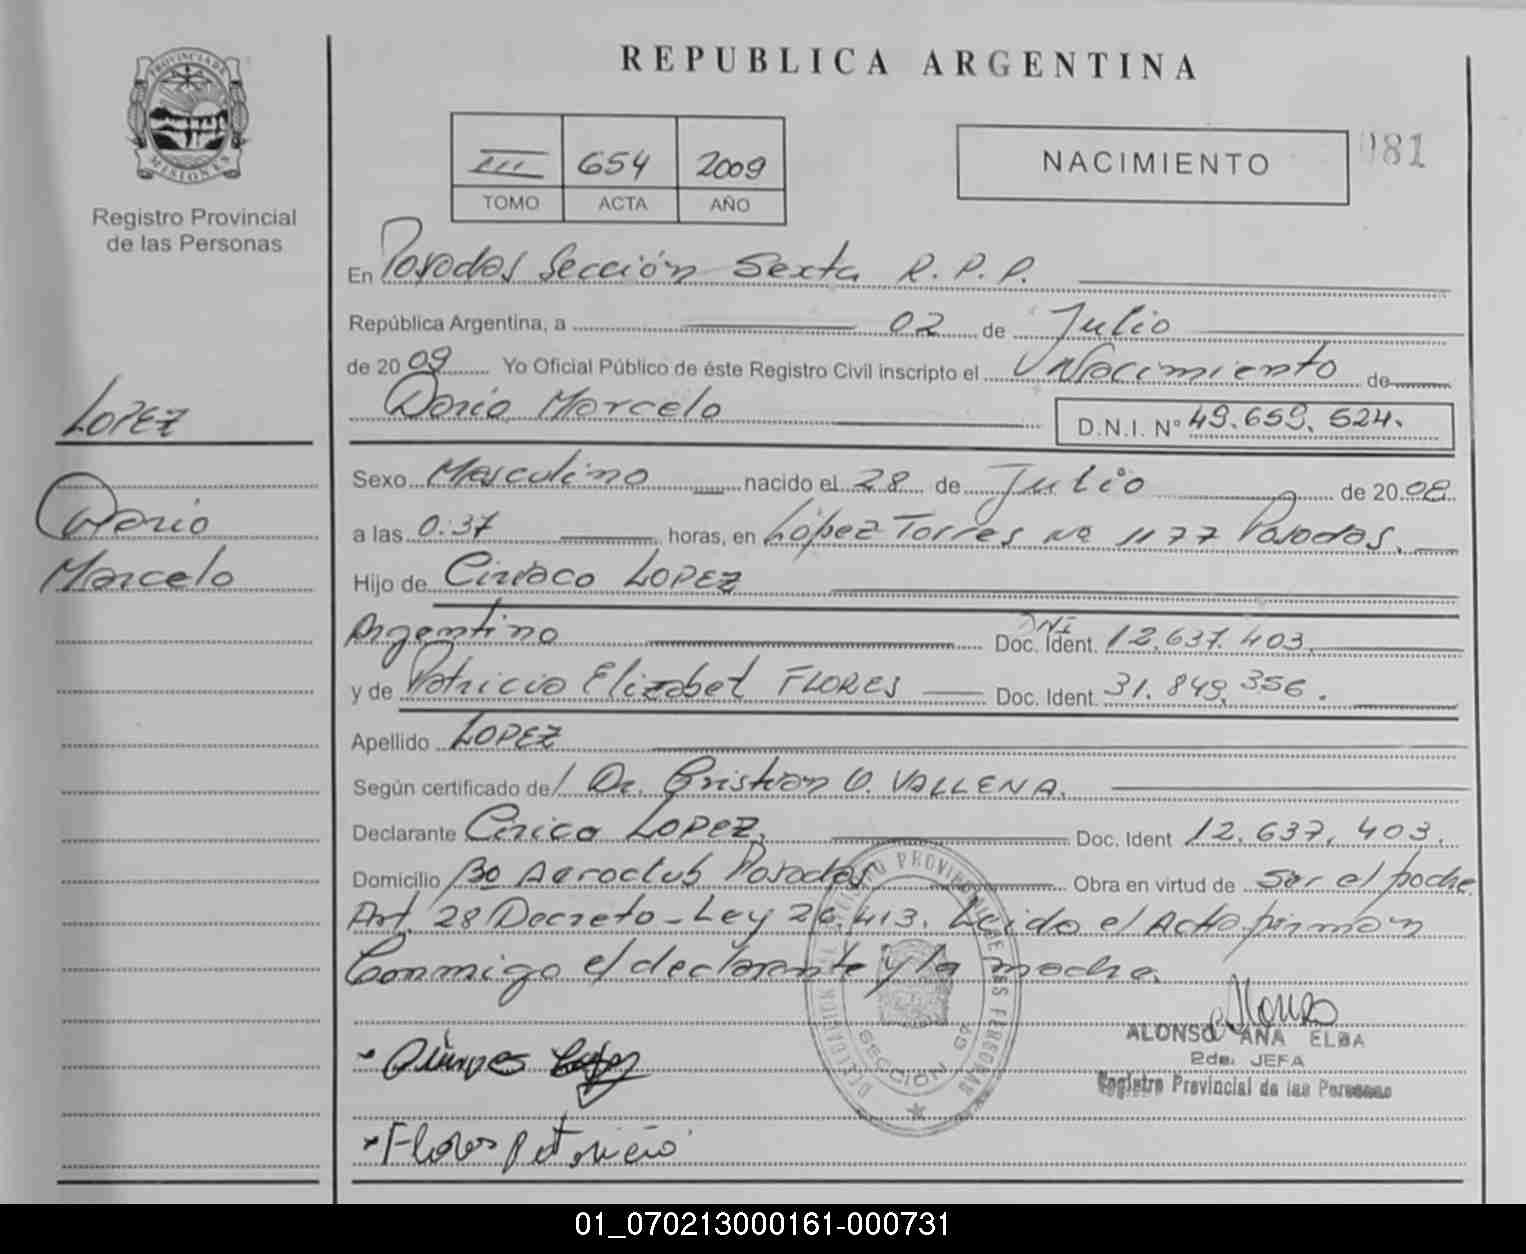 REPUBLICA ARGENTINA
PROVINCIA DE MISIONES
Registro Provincial
de las Personas
III 654 2009
TOMO ACTA AÑO
NACIMIENTO
081
En Posadas Sección Sexta R.P.P.
República Argentina, a 02 de Julio
de 2009 Yo Oficial Público de éste Registro Civil inscripto el Nacimiento de
Dario Marcelo
D.N.I. Nº 49.659.524.
LOPEZ
Dario
Marcelo
Sexo Masculino nacido el 28 de Julio de 2008
a las 0.37 horas, en López Torres Nº 1177 Posadas.
Hijo de Ciriaco LOPEZ
Argentino DNI Doc. Ident. 12.637.403.
y de Patricia Elizabet FLORES Doc. Ident. 31.849.356.
Apellido LOPEZ
Según certificado de/ Dr. Cristian O. VALLENA.
Declarante Cirico LOPEZ, Doc. Ident 12.637.403.
Domicilio Bº Aeroclub Posadas Obra en virtud de ser el padre
Art. 28 Decreto-Ley 26.413. Leido el Acta firman
Conmigo el declarante y la madre.
Alonso
ALONSO ANA ELBA
2da. JEFA
Registro Provincial de las Personas
SECCION 6ª
Flores Patricia
01_070213000161-000731